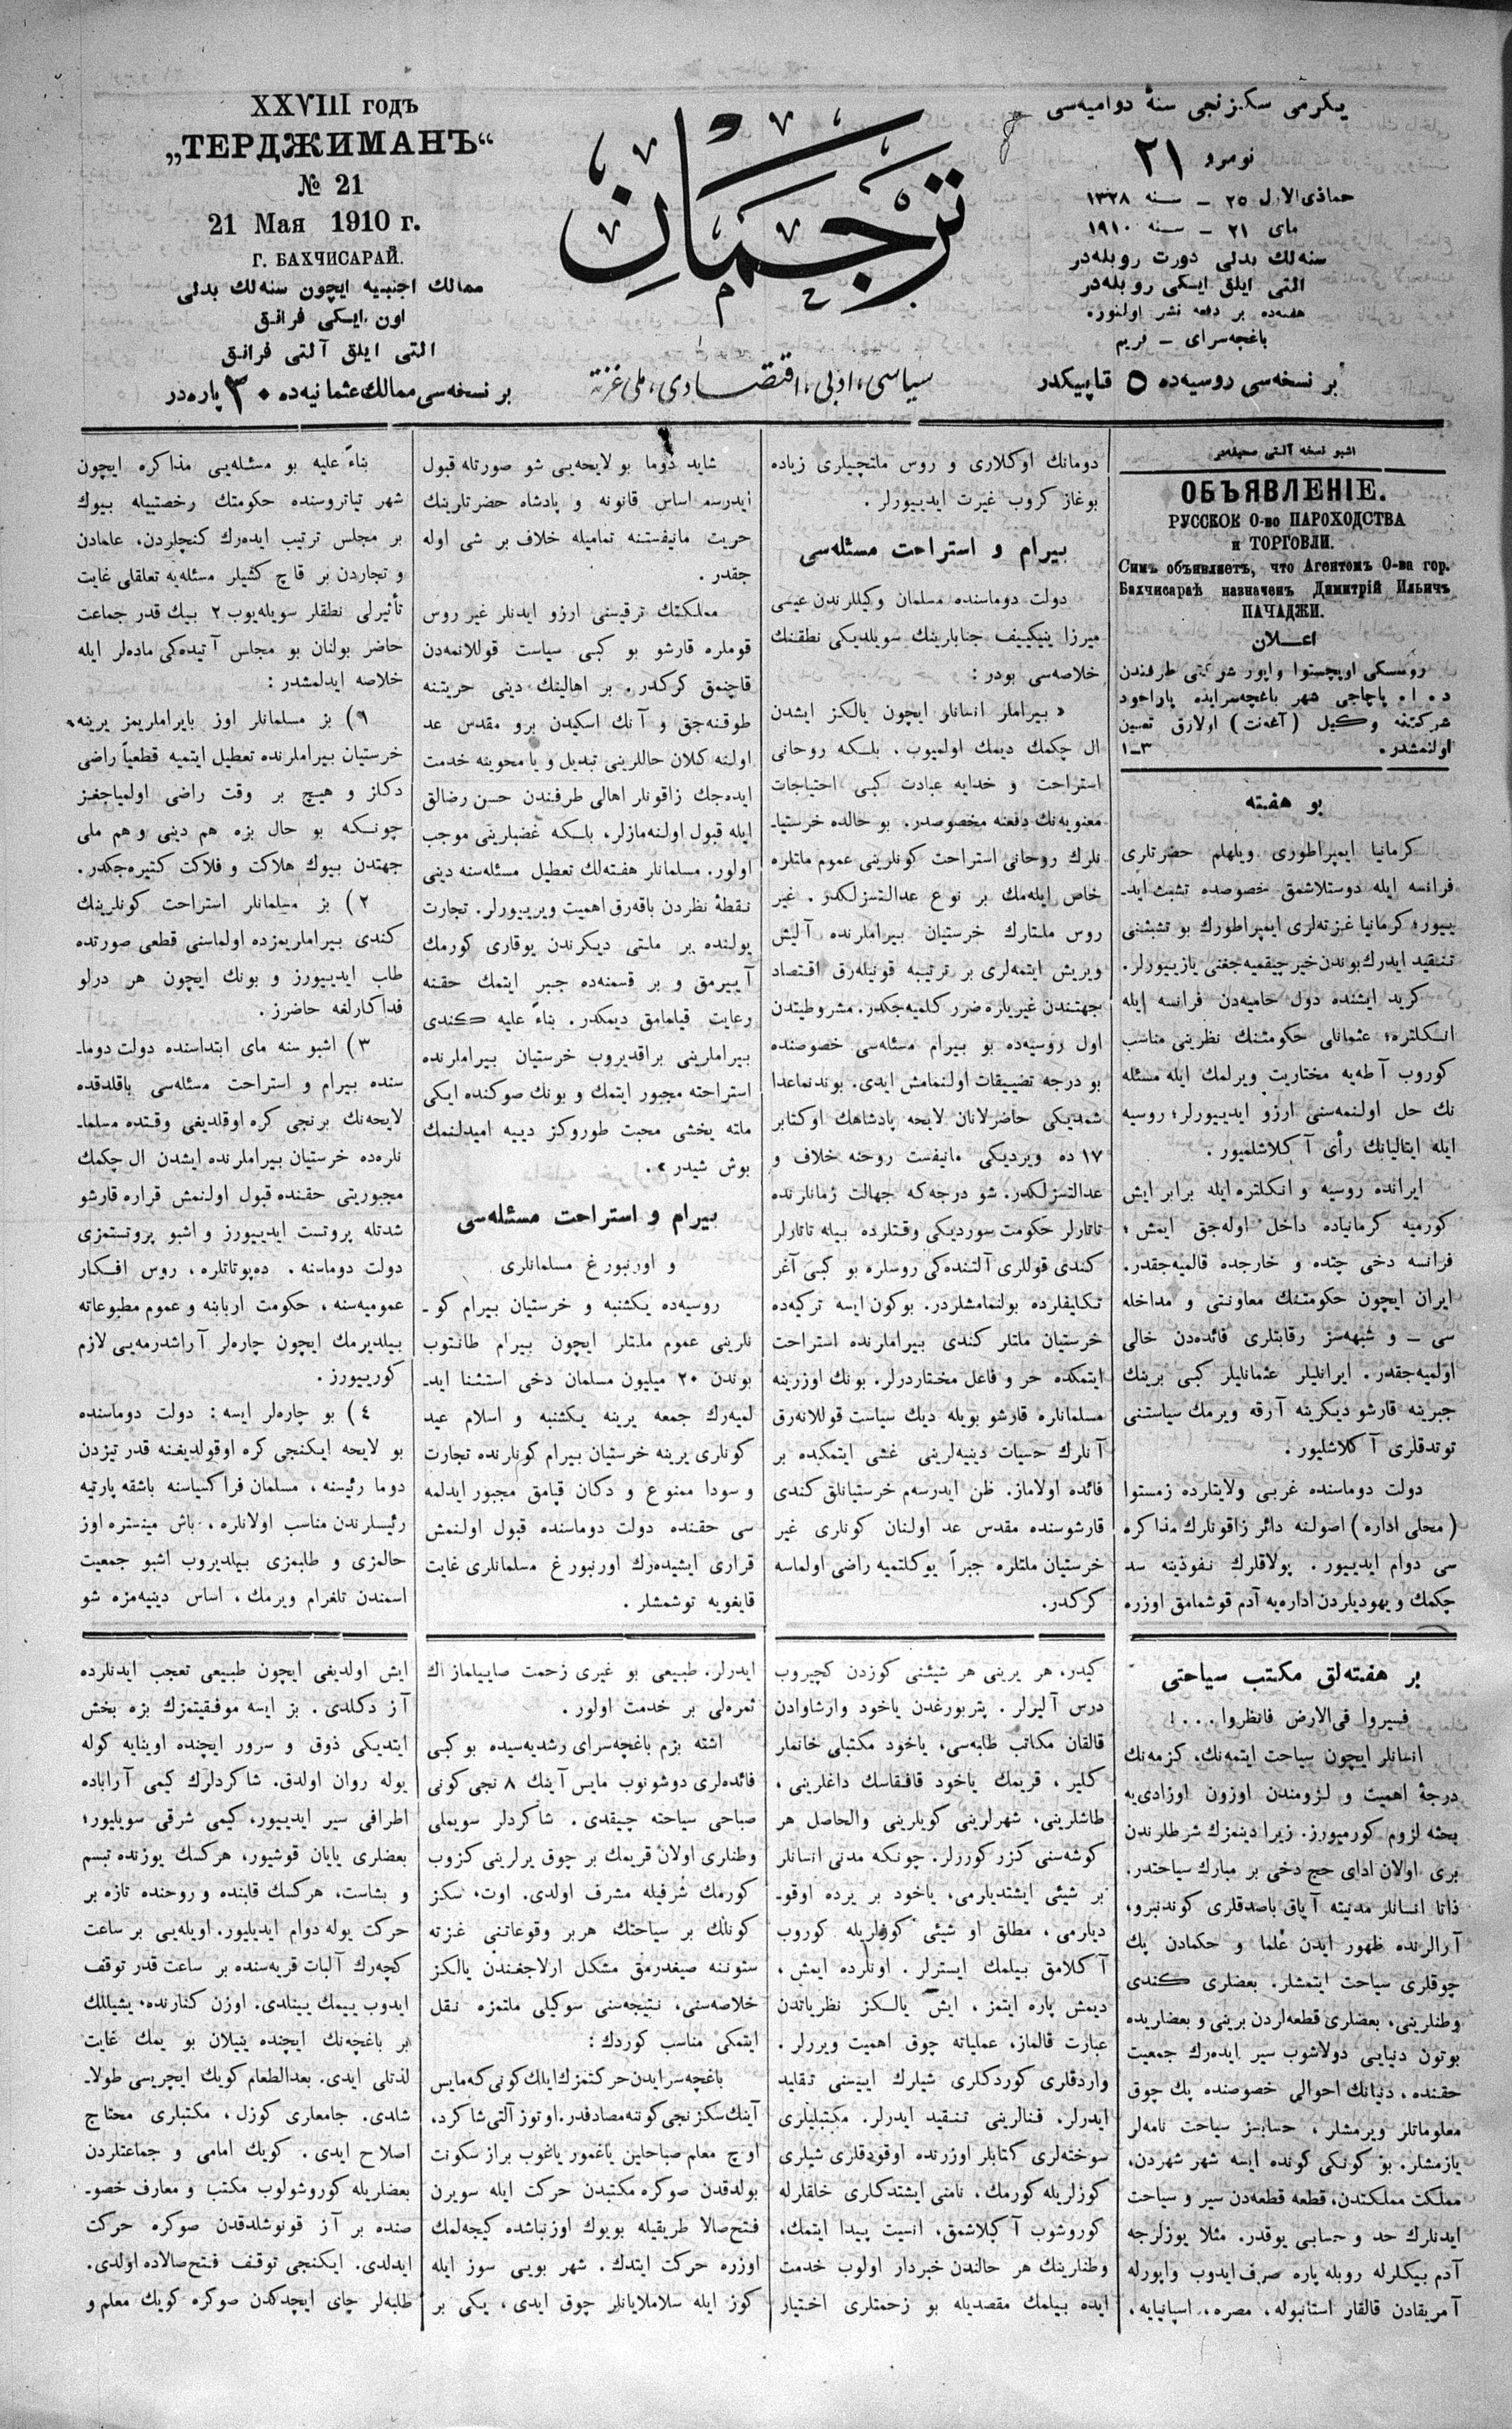 XXVIII годъ
„ТЕРДЖИМАНЪ“
№ 21
21 Мая 1910 г.
Г. БАХЧИСАРАЙ.
ممالك اجنبيه ايچون سنه‌لك بدلى
اون ايكى فرانق
التى ايلق آلتى فرانق
بر نسخه‌سى ممالك عثمانيه‌ده ٣٠ پاره‌در
ترجمان
سياسى، ادبى، اقتصادى، ملى غزته
يكرمى سكزنجى سنهٔ دواميه‌سى
نومرو ٢١
جماذى‌الاول ٢٥ ــ سنه ١٣٢٨
ماى ٢١ ــ سنه ١٩١٠
سنه‌لك بدلى دورت روبله‌در
التى ايلق ايكى روبله‌در
هفته‌ده بر دفعه نشر اولنور
باغچه‌سراى ــ قريم
بر نسخه‌سى روسيه‌ده ٥ قاپيكدر
اشبو نسخه آلتى صحيفه‌در
ОБЪЯВЛЕНІЕ.
РУССКОЕ О-во ПАРОХОДСТВА
и ТОРГОВЛИ.
Симъ объявляетъ, что Агентомъ О-ва гор.
Бахчисараѣ назначенъ Димитрій Ильичъ
ПАЧАДЖИ.
اعــلان
روسسكى اوبچستوا واپور شركتى طرفندن
د. ا. پاچاجى شهر باغچه‌سرايده پاراخود
شركتنه وكيل (آغه‌نت) اولارق تعيين
اولنمشدر. ٣ــ١
بو هفته
كرمانيا ايمپراطورى ويلهلم حضرتلرى
فرانسه ايله دوستلاشمق خصوصده تشبث ايد‌ـ
ييور؛ كرمانيا غزته‌لرى ايمپراطورك بو تشبثنى
تنقيد ايدرك بوندن خير چيقميه‌جغنى يازييورلر.
كريد ايشنده دول حاميه‌دن فرانسه ايله
انكلتره؛ عثمانلى حكومتنك نظرينى مناسب
كوروب آطه‌يه مختاريت ويرلمك ايله مسئله
نك حل اولنمه‌سنى ارزو ايدييورلر؛ روسيه
ايله ايتاليانك رأى آكلاشلميور.
ايرانده روسيه و انكلتره ايله برابر ايش
كورميه كرمانياده داخل اوله‌جق ايمش؛
فرانسه دخى چتده و خارجده قالميه‌جقدر.
ايران ايچون حكومتنك معاونتى و مداخله
سى ــ و شبهه‌سز رقابتلرى فائده‌دن خالى
اولميه‌جقدر. ايرانليلر عثمانليلر كبى برينك
جبرينه قارشو ديكرينه آرقه ويرمك سياستنى
توتدقلرى آكلاشليور.
دولت دوماسنده غربى ولايتلرده زمستوا
(محلى اداره) اصولنه دائر زاقونلرك مذاكره
سى دوام ايدييور. پولاقلرك نفوذينه سد
چكمك و يهوديلردن اداره‌يه آدم قوشمامق اوزره
دومانك اوكلارى و روس ملتچيلرى زياده
بوغاز كروب غيرت ايدييورلر.
بيرام و استراحت مسئله‌سى
دولت دوماسنده مسلمان وكيللرندن عيسى
ميرزا ينيكييف جنابلرينك سويلديكى نطقنك
خلاصه‌سى بودر:
« بيراملر انسانلر ايچون يالكز ايشدن
ال چكمك ديمك اولميوب، بلكه روحانى
استراحت و خدايه عبادت كبى احتياجات
معنويه‌نك دفعنه مخصوصدر. بو حالده خرستيا‌ـ
نلرك روحانى استراحت كونلرينى عموم ملتلره
خاص ايله‌مك بر نوع عدالتسزلكدر. غير
روس ملتلرك خرستيان بيراملرنده آليش
ويريش ايتمه‌لرى بر ترتيبه قونيله‌رق اقتصاد
جهتندن غيرياره ضرر كلميه‌جكدر. مشروطيتدن
اول روسيه‌ده بو بيرام مسئله‌سى خصوصنده
بو درجه تضييقات اولنمامش ايدى. بوندنماعدا
شمديكى حاضرلانان لايحه پادشاهك اوكتابر
١٧ ده ويرديكى مانيفست روحنه خلاف و
عدالتسزلكدر. شو درجه‌كه جهالت زمانلرنده
تاتارلر حكومت سورديكى وقتلرده بيله تاتارلر
كندى قوللرى آلتنده‌كى روسلره بو كبى آغر
تكليفلرده بولنمامشلردر. بوكون ايسه تركيه‌ده
خرستيان ملتلر كندى بيراملرنده استراحت
ايتمكده حر و فاعل مختاردرلر. بونك اوزرينه
مسلمانلره قارشو بويله ديك سياست قوللانه‌رق
آنلرك حسيات دينيه‌لرينى غشى ايتمكده بر
فائده اولاماز. ظن ايدرسه‌م خرستيانلق كندى
قارشوسنده مقدس عد اولنان كونلرى غير
خرستيان ملتلره جبراً يوكلتميه راضى اولماسه
كركدر.
شايد دوما بو لايحه‌يى شو صورتله قبول
ايدرسه اساس قانونه و پادشاه حضرتلرينك
حريت مانيفستنه تماميله خلاف بر شى اوله
جقدر.
مملكتك ترقيسنى ارزو ايدنلر غير روس
قوملره قارشو بو كبى سياست قوللانمه‌دن
قاچنمق كركدر. بر اهالينك دينى حريتنه
طوقنه‌جق و آنك اسكيدن برو مقدس عد
اولنه كلان حاللرينى تبديل و يا محوينه خدمت
ايده‌جك زاقونلر اهالى طرفندن حسن رضالق
ايله قبول اولنه‌مازلر، بلكه غضبلرينى موجب
اولور. مسلمانلر هفته‌لك تعطيل مسئله‌سنه دينى
نقطهٔ نظردن باقه‌رق اهميت ويرييورلر. تجارت
يولنده بر ملتى ديكرندن يوقارى كورمك
آييرمق و بر قسمنه‌ده جبر ايتمك حقنه
رعايت قيلمامق ديمكدر. بناءً عليه كندى
بيراملرينى براقديروب خرستيان بيراملرنده
استراحته مجبور ايتمك و بونك صوكنده ايكى
ملته يخشى محبت طوروكز دييه اميدلنمك
بوش شيدر».
بيرام و استراحت مسئله‌سى
و اورنبورغ مسلمانلرى
روسيه‌ده يكشنبه و خرستيان بيرام كو‌ـ
نلرينى عموم ملتلر ايچون بيرام طانتوب
بوندن ٢٠ ميليون مسلمان دخى استثنا ايد‌ـ
لميه‌رك جمعه يرينه يكشنبه و اسلام عيد
كونلرى يرينه خرستيان بيرام كونلرنده تجارت
و سودا ممنوع و دكان قپامق مجبور ايدلمه
سى حقنده دولت دوماسنده قبول اولنمش
قرارى ايشيده‌رك اورنبورغ مسلمانلرى غايت
قايغويه توشمشلر.
بناءً عليه بو مسئله‌يى مذاكره ايچون
شهر تياتروسنده حكومتك رخصتييله بيوك
بر مجلس ترتيب ايده‌رك كنچلردن، علمادن
و تجاردن بر قاچ كشيلر مسئله‌يه تعلقلى غايت
تأثيرلى نطقلر سويله‌يوب ٢ بيك قدر جماعت
حاضر بولنان بو مجلس آتيده‌كى ماده‌لر ايله
خلاصه ايدلمشدر:
١) بز مسلمانلر اوز بايراملريمز يرينه
خرستيان بيراملرنده تعطيل ايتميه قطعياً راضى
دكلز و هيچ بر وقت راضى اولمياجغز
چونكه بو حال بزه هم دينى و هم ملى
جهتدن بيوك هلاكت و فلاكت كتيره‌جكدر.
٢) بز مسلمانلر استراحت كونلرينك
كندى بيراملريمزده اولماسنى قطعى صورتده
طلب ايدييورز و بونك ايچون هر درلو
فداكارلغه حاضرز.
٣) اشبو سنه ماى ابتداسنده دولت دوما‌ـ
سنده بيرام و استراحت مسئله‌سى باقلدقده
لايحه‌نك برنجى كره اوقلديغى وقتده مسلما‌ـ
نلره‌ده خرستيان بيراملرنده ايشدن ال چكمك
مجبوريتى حقنده قبول اولنمش قراره قارشو
شدتله پروتست ايدييورز و اشبو پروتستمزى
دولت دوماسنه، ده‌پوتاتلره، روس افكار
عموميه‌سنه، حكومت اربابنه و عموم مطبوعاته
بيلديرمك ايچون چاره‌لر آراشدرمه‌يى لازم
كورييورز.
٤) بو چاره‌لر ايسه: دولت دوماسنده
بو لايحه ايكنجى كره اوقولديغنه قدر تيزدن
دوما رئيسنه، مسلمان فراكسياسنه باشقه پارتيه
رئيسلرندن مناسب اولانلره، باش مينستره اوز
حالمزى و طلبمزى بيلديروب اشبو جمعيت
اسمندن تلغرام ويرمك، اساس دينيه‌مزه شو
بر هفته‌لق مكتب سياحتى
فسيروا فى‌الارض فانظروا...!
انسانلر ايچون سياحت ايتمه‌نك، كزمه‌نك
درجهٔ اهميت و لزومندن اوزون اوزادى‌يه
بحثه لزوم كورميورز. زيرا دينمزك شرطلرندن
برى اولان اداى حج دخى بر مبارك سياحتدر.
ذاتا انسانلر مدنيته آياق باصدقلرى كوندنبرو،
آرالرنده ظهور ايدن علما و حكمادن پك
چوقلرى سياحت ايتمشلر. بعضلرى كندى
وطنلرينى، بعضلرى قطعه‌لردن برينى و بعضاريده
بوتون دنيايى دولاشوب سير ايده‌رك جمعيت
حقنده، دنيانك احوالى خصوصنده پك چوق
معلوماتلر ويرمشلر، حسابسز سياحت نامه‌لر
يازمشلر. بو كونكى كونده ايسه شهر شهردن،
مملكت مملكتدن، قطعه قطعه‌دن سير و سياحت
ايدنلرك حد و حسابى يوقدر. مثلا يوزلرجه
آدم بيكلرله روبله پاره صرف ايدوب واپورله
آمريقادن قالقار استانبوله، مصره، اسپانيايه،
كيدر، هر يرينى هر شيئنى كوزدن كچيروب
درس آليرلر. پتربورغدن ياخود وارشاوادن
قالقان مكاتب طلبه‌سى، ياخود مكتبلى خانملر
كلير، قريمك ياخود قافقاسك داغلرينى،
طاشلرينى، شهرلرينى كويلرينى والحاصل هر
كوشه‌سنى كزر كوررلر. چونكه مدنى انسانلر
بر شيئى ايشتديلرمى، ياخود بر يرده اوقو‌ـ
ديلرمى، مطلق او شيئى كوزلريله كوروب
آكلامق بيلمك ايسترلر. اونلرده ايمش،
ديمش پاره ايتمز، ايش يالكز نظرياتدن
عبارت قالماز، عملياته چوق اهميت ويررلر.
واردقلرى كوردكلرى شيلرك ايينسنى تقليد
ايدرلر، فنالرينى تنقيد ايدرلر. مكتبليلرى
سوخته‌لرى كتابلر اوزرنده اوقودقلرى شيلرى
كوزلريله كورمك، نامنى ايشتدكلرى خلقلرله
كوروشوب آكلاشمق، انسيت پيدا ايتمك،
وطنلرينك هر حالندن خبردار اولوب خدمت
ايده بيلمك مقصديله بو زحمتلرى اختيار
ايدرلر. طبيعى بو غيرى زحمت صاييلماز اك
ثمره‌لى بر خدمت اولور.
اشته بزم باغچه‌سراى رشديه‌سيده بو كبى
فائده‌لرى دوشونوب مايس آينك ٨ نجى كونى
صباحى سياحته چيقدى. شاكردلر سويملى
وطنلرى اولان قريمك بر چوق يرلرينى كزوب
كورمك شرفيله مشرف اولدى. اوت، سكز
كونلك بر سياحتك هربر وقوعاتنى غزته
ستوننه صيغدرمق مشكل اولاجغندن يالكز
خلاصه‌سنى، نتيجه‌سنى سوكيلى ملتمزه نقل
ايتمكى مناسب كوردك:
باغچه‌سرايدن حركتمزك ايلك كونى كه مايس
آينك سكزنجى كوننه مصادفدر. اوتوز آلتى شاكرد،
اوچ معلم صباحلين ياغمور ياغوب براز سكونت
بولدقدن صوكره مكتبدن حركت ايله سويرن
فتح‌صالا طريقيله بويوك اوزنباشده كيچه‌لمك
اوزره حركت ايتدك. شهر بويى سوز ايله
كوز ايله سلاملايانلر چوق ايدى، يكى بر
ايش اولديغى ايچون طبيعى تعجب ايدنلرده
آز دكلدى. بز ايسه موفقيتمزك بزه بخش
ايتديكى ذوق و سرور ايچنده اوينايه كوله
يوله روان اولدق. شاكردلرك كيمى آراباده
اطرافى سير ايدييور، كيمى شرقى سويليور؛
بعضلرى يايان قوشيور، هركسك يوزنده تبسم
و بشاست، هركسك قلبنده و روحنده تازه بر
حركت يوله دوام ايديليور. اويله‌يى بر ساعت
كچه‌رك آلبات قريه‌سنده بر ساعت قدر توقف
ايدوب ييمك يينلدى. اوزن كنارنده، يشيللك
بر باغچه‌نك ايچنده ينيلان بو يمك غايت
لذتلى ايدى. بعدالطعام كويك ايچريسى طولا‌ـ
شلدى. جامعلرى كوزل، مكتبلرى محتاج
اصلاح ايدى. كويك امامى و جماعتلردن
بعضلريله كوروشولوب مكتب و معارف خصو‌ـ
صنده بر آز قونوشلدقدن صوكره حركت
ايدلدى. ايكنجى توقف فتح‌صالاده اولدى.
طلبه‌لر چاى ايچدكدن صوكره كويك معلم و